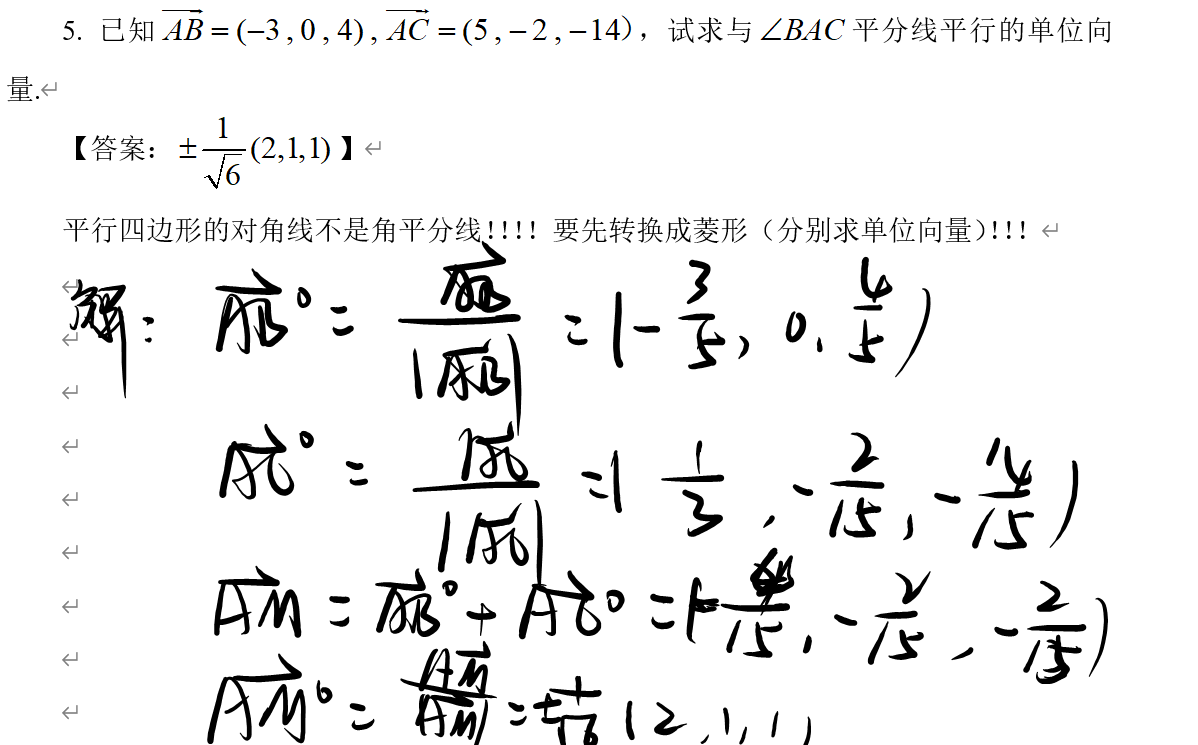 5. 已知 $\overrightarrow{AB}=(-3,0,4)$, $\overrightarrow{AC}=(5,-2,-14)$，试求与 ∠BAC 平分线平行的单位向
量.↵
【答案：$\pm\frac{1}{\sqrt{6}}(2,1,1)$】↵
平行四边形的对角线不是角平分线!!!! 要先转换成菱形（分别求单位向量)!!! ↵
解： $\overrightarrow{AB}^0=\frac{\overrightarrow{AB}}{|\overrightarrow{AB}|}=(-\frac{3}{5}, 0, \frac{4}{5})$
$\overrightarrow{AC}^0=\frac{\overrightarrow{AC}}{|\overrightarrow{AC}|}=(\frac{1}{3}, -\frac{2}{15}, -\frac{14}{15})$
$\overrightarrow{AM}=\overrightarrow{AB}^0+\overrightarrow{AC}^0=(-\frac{4}{15}, -\frac{2}{15}, -\frac{2}{15})$
$\overrightarrow{AM}^0=\frac{\overrightarrow{AM}}{|\overrightarrow{AM}|}=\pm\frac{1}{\sqrt{6}}(2,1,1)$